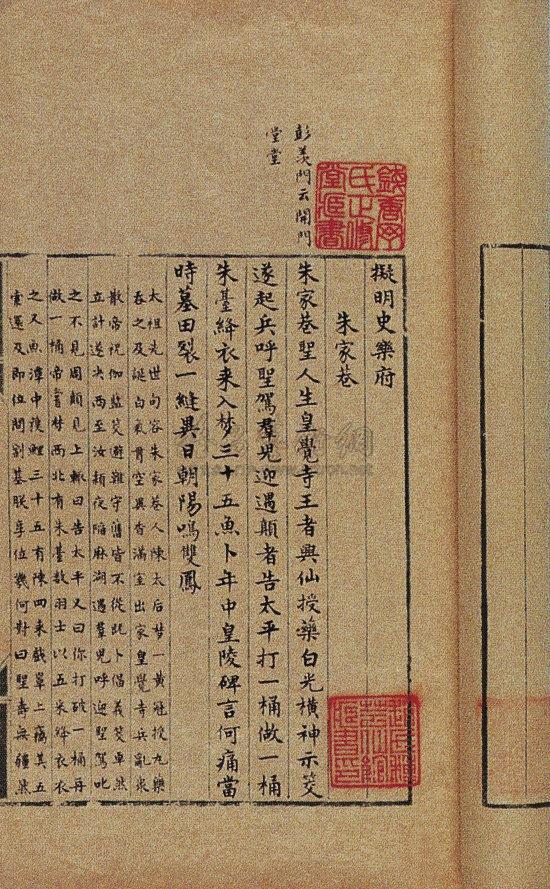 擬明史樂府
朱家巷
朱家巷聖人生皇覺寺王者興仙授藥白光橫神示筊
遂起兵呼聖駕羣兒迎遇顛者告太平打一桶做一桶
朱臺絳衣来入梦三十五魚卜年中皇陵碑言何痛當
時墓田裂一縫異日朝陽鳴雙鳳
太祖先世句容朱家巷人陳太后梦一黃冠授九藥
吞之及誕白氣貫空異香滿室出家皇覺寺兵亂衆
散帝祝伽藍筊避難守舊皆不從既卜倡義筊卓然
立計遂决西至汝潁夜陷麻湖遇羣兒呼迎聖駕叱
之不見周顛見上輒曰告太平又曰你打破一桶再
做一桶帝嘗梦西北有朱臺数羽士以五米絳衣衣
之又魚潭中獲鯉三十五有陳四来戲罩上
壺還及即位問劉基朕享位幾何對曰聖壽無疆
彭羨門云開門
堂堂